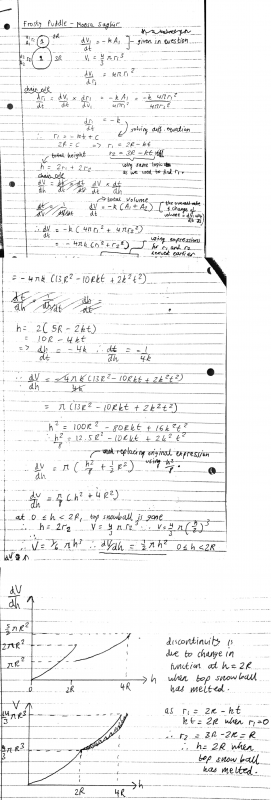 Frosty Puddle - Moosa Saghir
① 2R
② 3R
dV₁/dt = -kA₁ ] - given in question
V₁ = 4/3 πr₁³
dV₁/dr₁ = 4πr₁²
chain rule
dr₁/dt = dV₁/dt × dr₁/dV₁ = -kA₁/4πr₁² = -k 4πr₁²/4πr₁²
dr₁/dt = -k
∴ r₁ = -kt + C } solving diff. equation
2R = C => r₁ = 2R - kt
r₂ = 3R - kt
total height
using same logic as we used to find r₁
h = 2r₁ + 2r₂
chain rule
dV/dh = dV/dt × dt/dh
total volume
dV/dt = -k(A₁ + A₂)
∴ dV/dt = -k(4πr₁² + 4πr₂²)
= -4πk(r₁² + r₂²)
using expressions for r₁ and r₂ earlier
= -4πk(13R² - 10Rkt + 2k²t²)
h = 2(5R - 2kt)
= 10R - 4kt
=> dh/dt = -4k ∴ dt/dh = -1/4k
∴ dV/dh = -4πk(13R² - 10Rkt + 2k²t²)/-4k
= π(13R² - 10Rkt + 2k²t²)
h² = 100R² - 80Rkt + 16k²t²
∴ h²/8 = 12.5R² - 10Rkt + 2k²t²
and replacing original expression using h²/8
dV/dh = π(h²/8 + 1/2 R²)
dV/dh = π/8 (h² + 4R²)
at 0 ≤ h < 2R, top snowball is gone
∴ h = 2r₂ V = 4/3 πr₂³ ∴ V = 4/3 π(h/2)³
∴ V = 1/6 πh³ ∴ dV/dh = 1/2 πh² 0 ≤ h < 2R
dV/dh
5/2 πR²
2πR²
πR²
0 2R 4R h
discontinuity is
due to change in
function at h = 2R
when top snowball
has melted.
V
4/3 πR³
0 2R 4R h
as r₁ = 2R - kt
kt = 2R when r₁ = 0
∴ r₂ = 3R - 2R = R
∴ h = 2R when
top snowball
has melted.